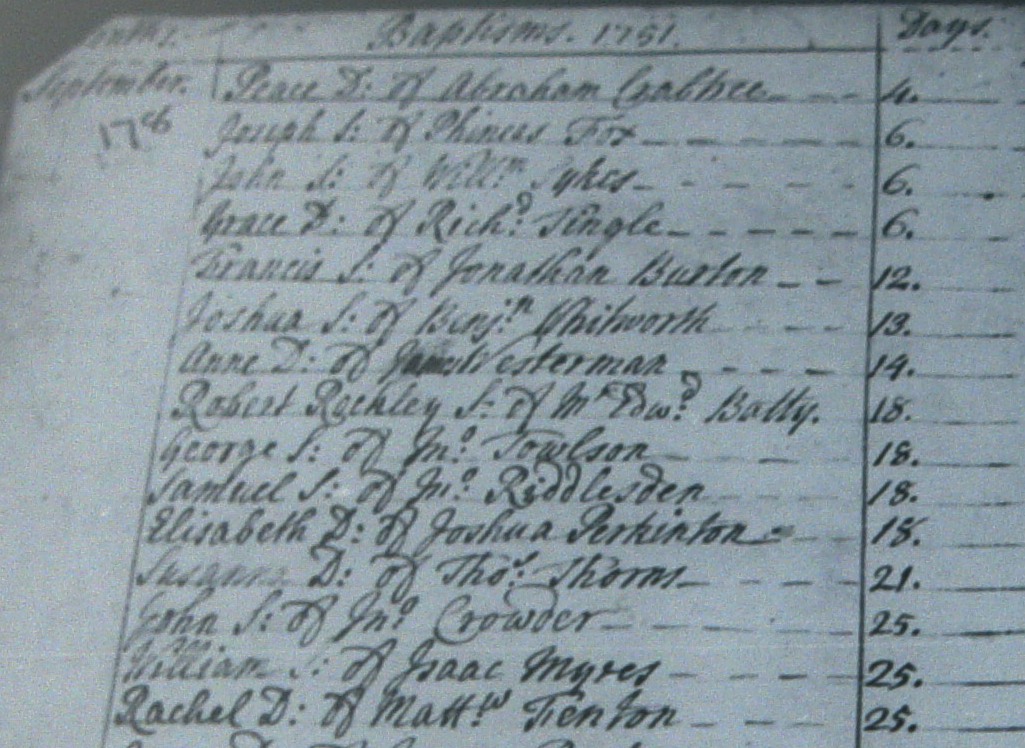 Baptisms. 1751. Days.
September. Peace D: of Abraham Crabtree 4.
Joseph S: of Phineas Fox 6.
John S: of Willm. Sykes 6.
Grace D: of Richd. Tingle 6.
Francis S: of Jonathan Burton 12.
Joshua S: of Benjn. Whitworth 13.
Anne D: of James Westerman 14.
Robert Rockley S: of Mr Edwd. Batty. 18.
George S: of Jno. Towlson 18.
Samuel S: of Jno. Riddlesden 18.
Elisabeth D: of Joshua Perkinton 18.
Susanna D: of Thos. Thorns 21.
John S: of Jno Crowder 25.
William S: of Isaac Myres 25.
Rachel D: of Mattw. Fenton 25.